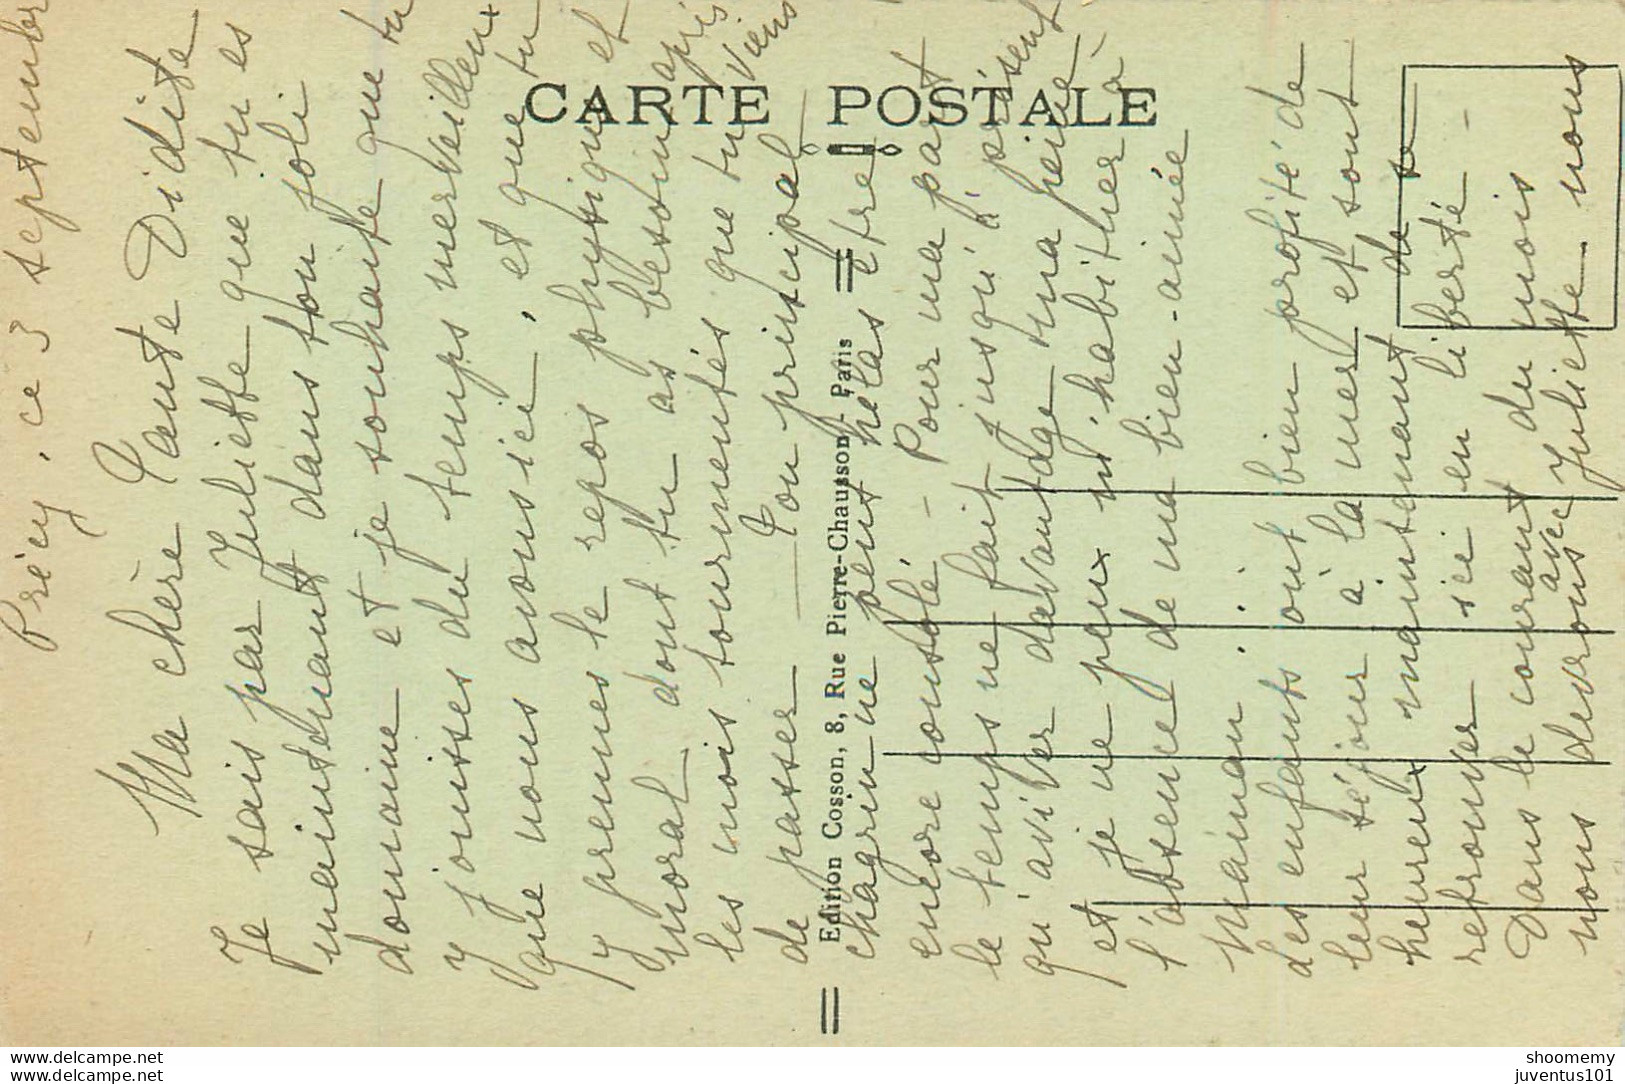 Précy, ce 3 septembre
Ma chère Tante Didite
Je sais par Juliette que tu es
maintenant dans ton joli
domaine et je souhaite que tu
y jouisses du temps merveilleux
que nous avons ici, et que tu
y prennes le repos physique et
moral dont tu as besoin après
les mois tourmentés que tu viens
de passer — Ton principal
chagrin ne peut hélas être
encore consolé — Pour ma part
le temps ne fait jusqu'à présent
qu'aviver davantage ma peine
et je ne peux m'habituer à
l'absence de ma bien-aimée
Maman.
Les enfants ont bien profité de
leur séjour à la mer et sont
heureux maintenant de se
retrouver ici en liberté —
Dans le courant du mois
nous devrons avec Juliette nous
CARTE POSTALE
Edition Cosson, 8, Rue Pierre-Chausson - Paris
www.delcampe.net
www.delcampe.net
shoomemy
juventus101